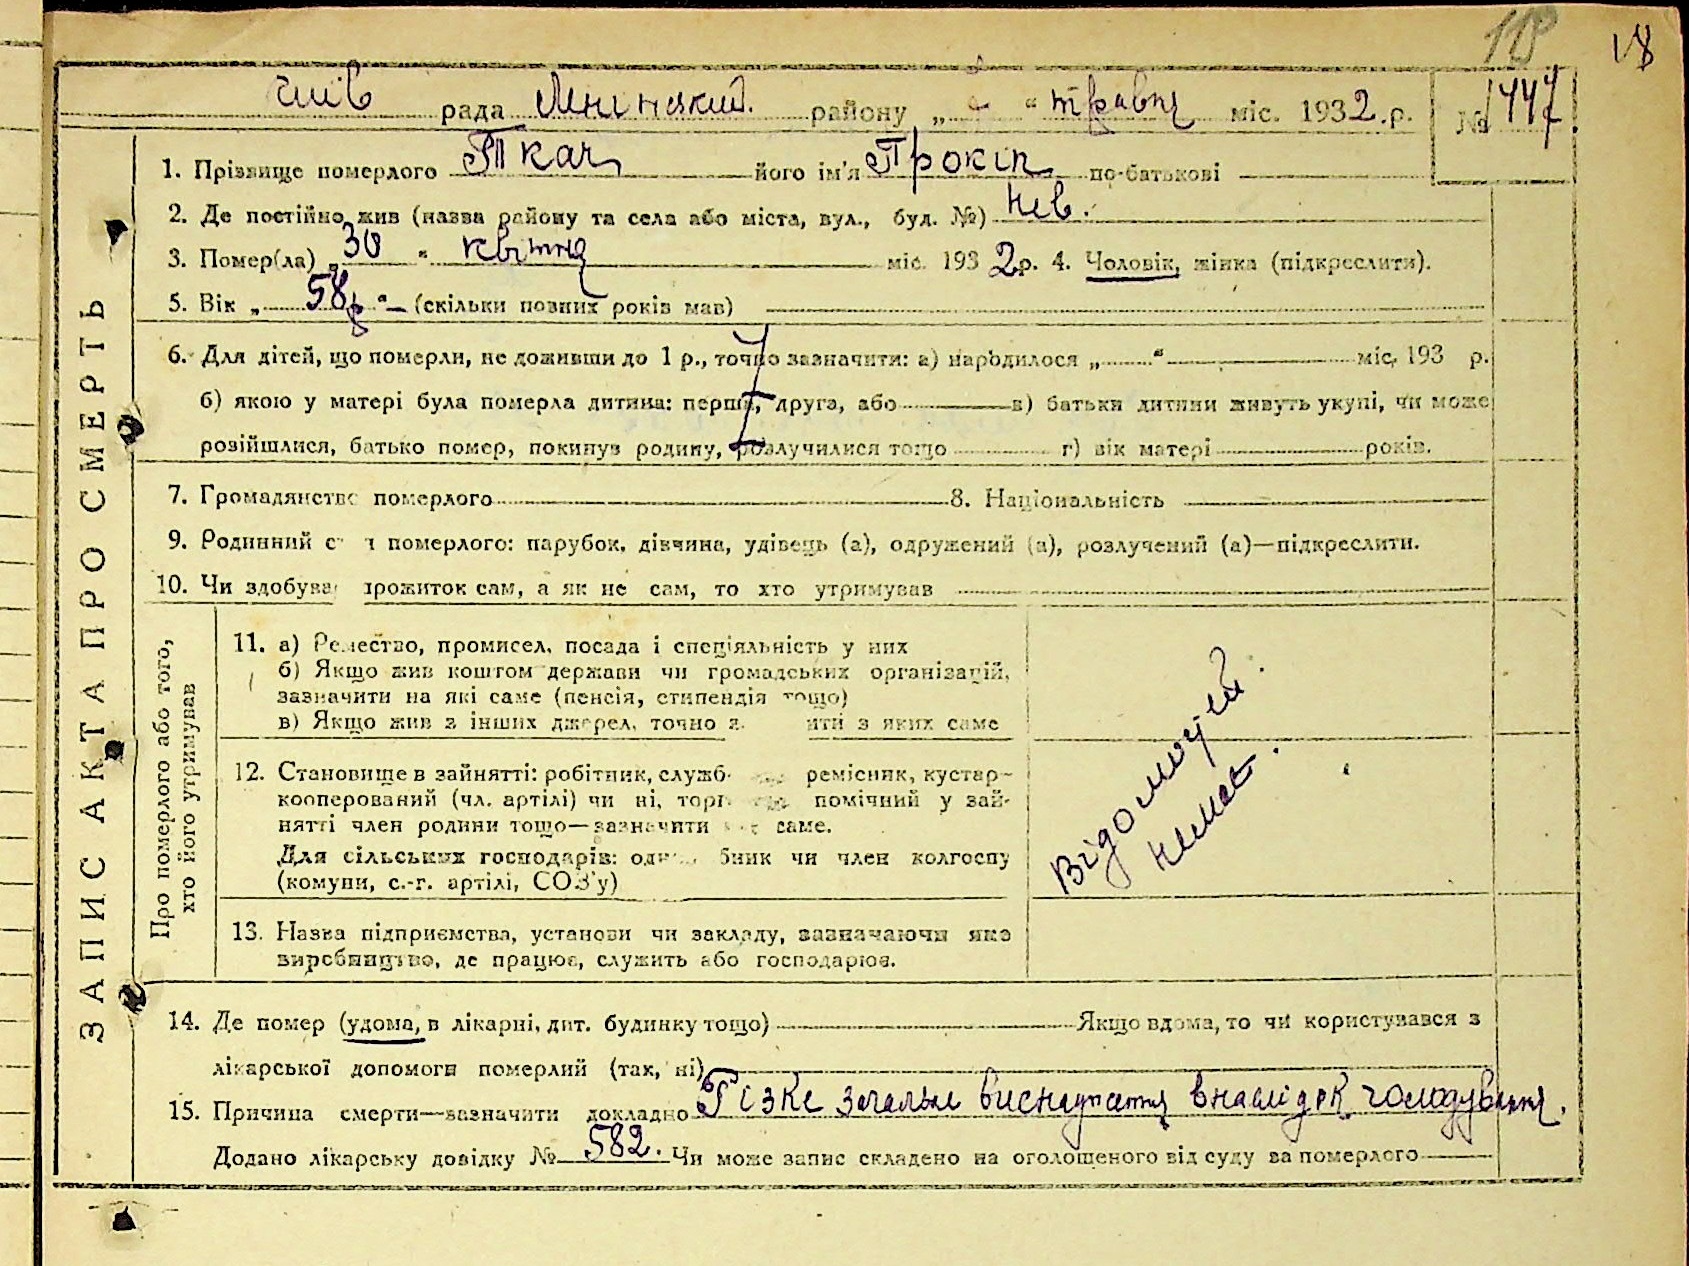 118 18
Київ рада Ленінський. району „ “ травня міс. 1932 р. № 1447
1. Прізвище померлого Ткач його ім'я Прокіп по-батькові
2. Де постійно жив (назва району та села або міста, вул., буд. №) Нев.
3. Помер(ла) „30“ квітня міс. 1932 р. 4. Чоловік, жінка (підкреслити).
5. Вік „58 р“ (скільки повних років мав)
6. Для дітей, що померли, не доживши до 1 р., точно зазначити: а) народилося „ “ міс. 193 р.
б) якою у матері була померла дитина: перша, друга, або в) батьки дитини живуть укупі, чи може
розійшлися, батько помер, покинув родину, розлучилися тощо г) вік матері років.
7. Громадянство померлого 8. Національність
9. Родинний с н померлого: парубок, дівчина, удівець (а), одружений (а), розлучений (а)—підкреслити.
10. Чи здобував прожиток сам, а як не сам, то хто утримував
ЗАПИС АКТА ПРО СМЕРТЬ
Про померлого або того,
хто його утримував
11. а) Ремество, промисел, посада і спеціяльність у них
б) Якщо жив коштом держави чи громадських організацій,
зазначити на які саме (пенсія, стипендія тощо)
в) Якщо жив з інших джерел, точно з ити з яких саме
12. Становище в зайнятті: робітник, служб ремісник, кустар-
кооперований (чл. артілі) чи ні, торг помічний у зай-
нятті член родини тощо—зазначити саме.
Для сільських господарів: одн бник чи член колгоспу
(комуни, с.-г. артілі, СОЗ'у)
13. Назва підприємства, установи чи закладу, зазначаючи яке
виробництво, де працює, служить або господарює.
Відомостей
немає.
14. Де помер (удома, в лікарні, дит. будинку тощо) Якщо вдома, то чи користувався з
лікарської допомоги померлий (так, ні)
15. Причина смерти—зазначити докладно Різке загальне виснаження внаслідок голодування.
Додано лікарську довідку № 582. Чи може запис складено на оголошеного від суду за померлого